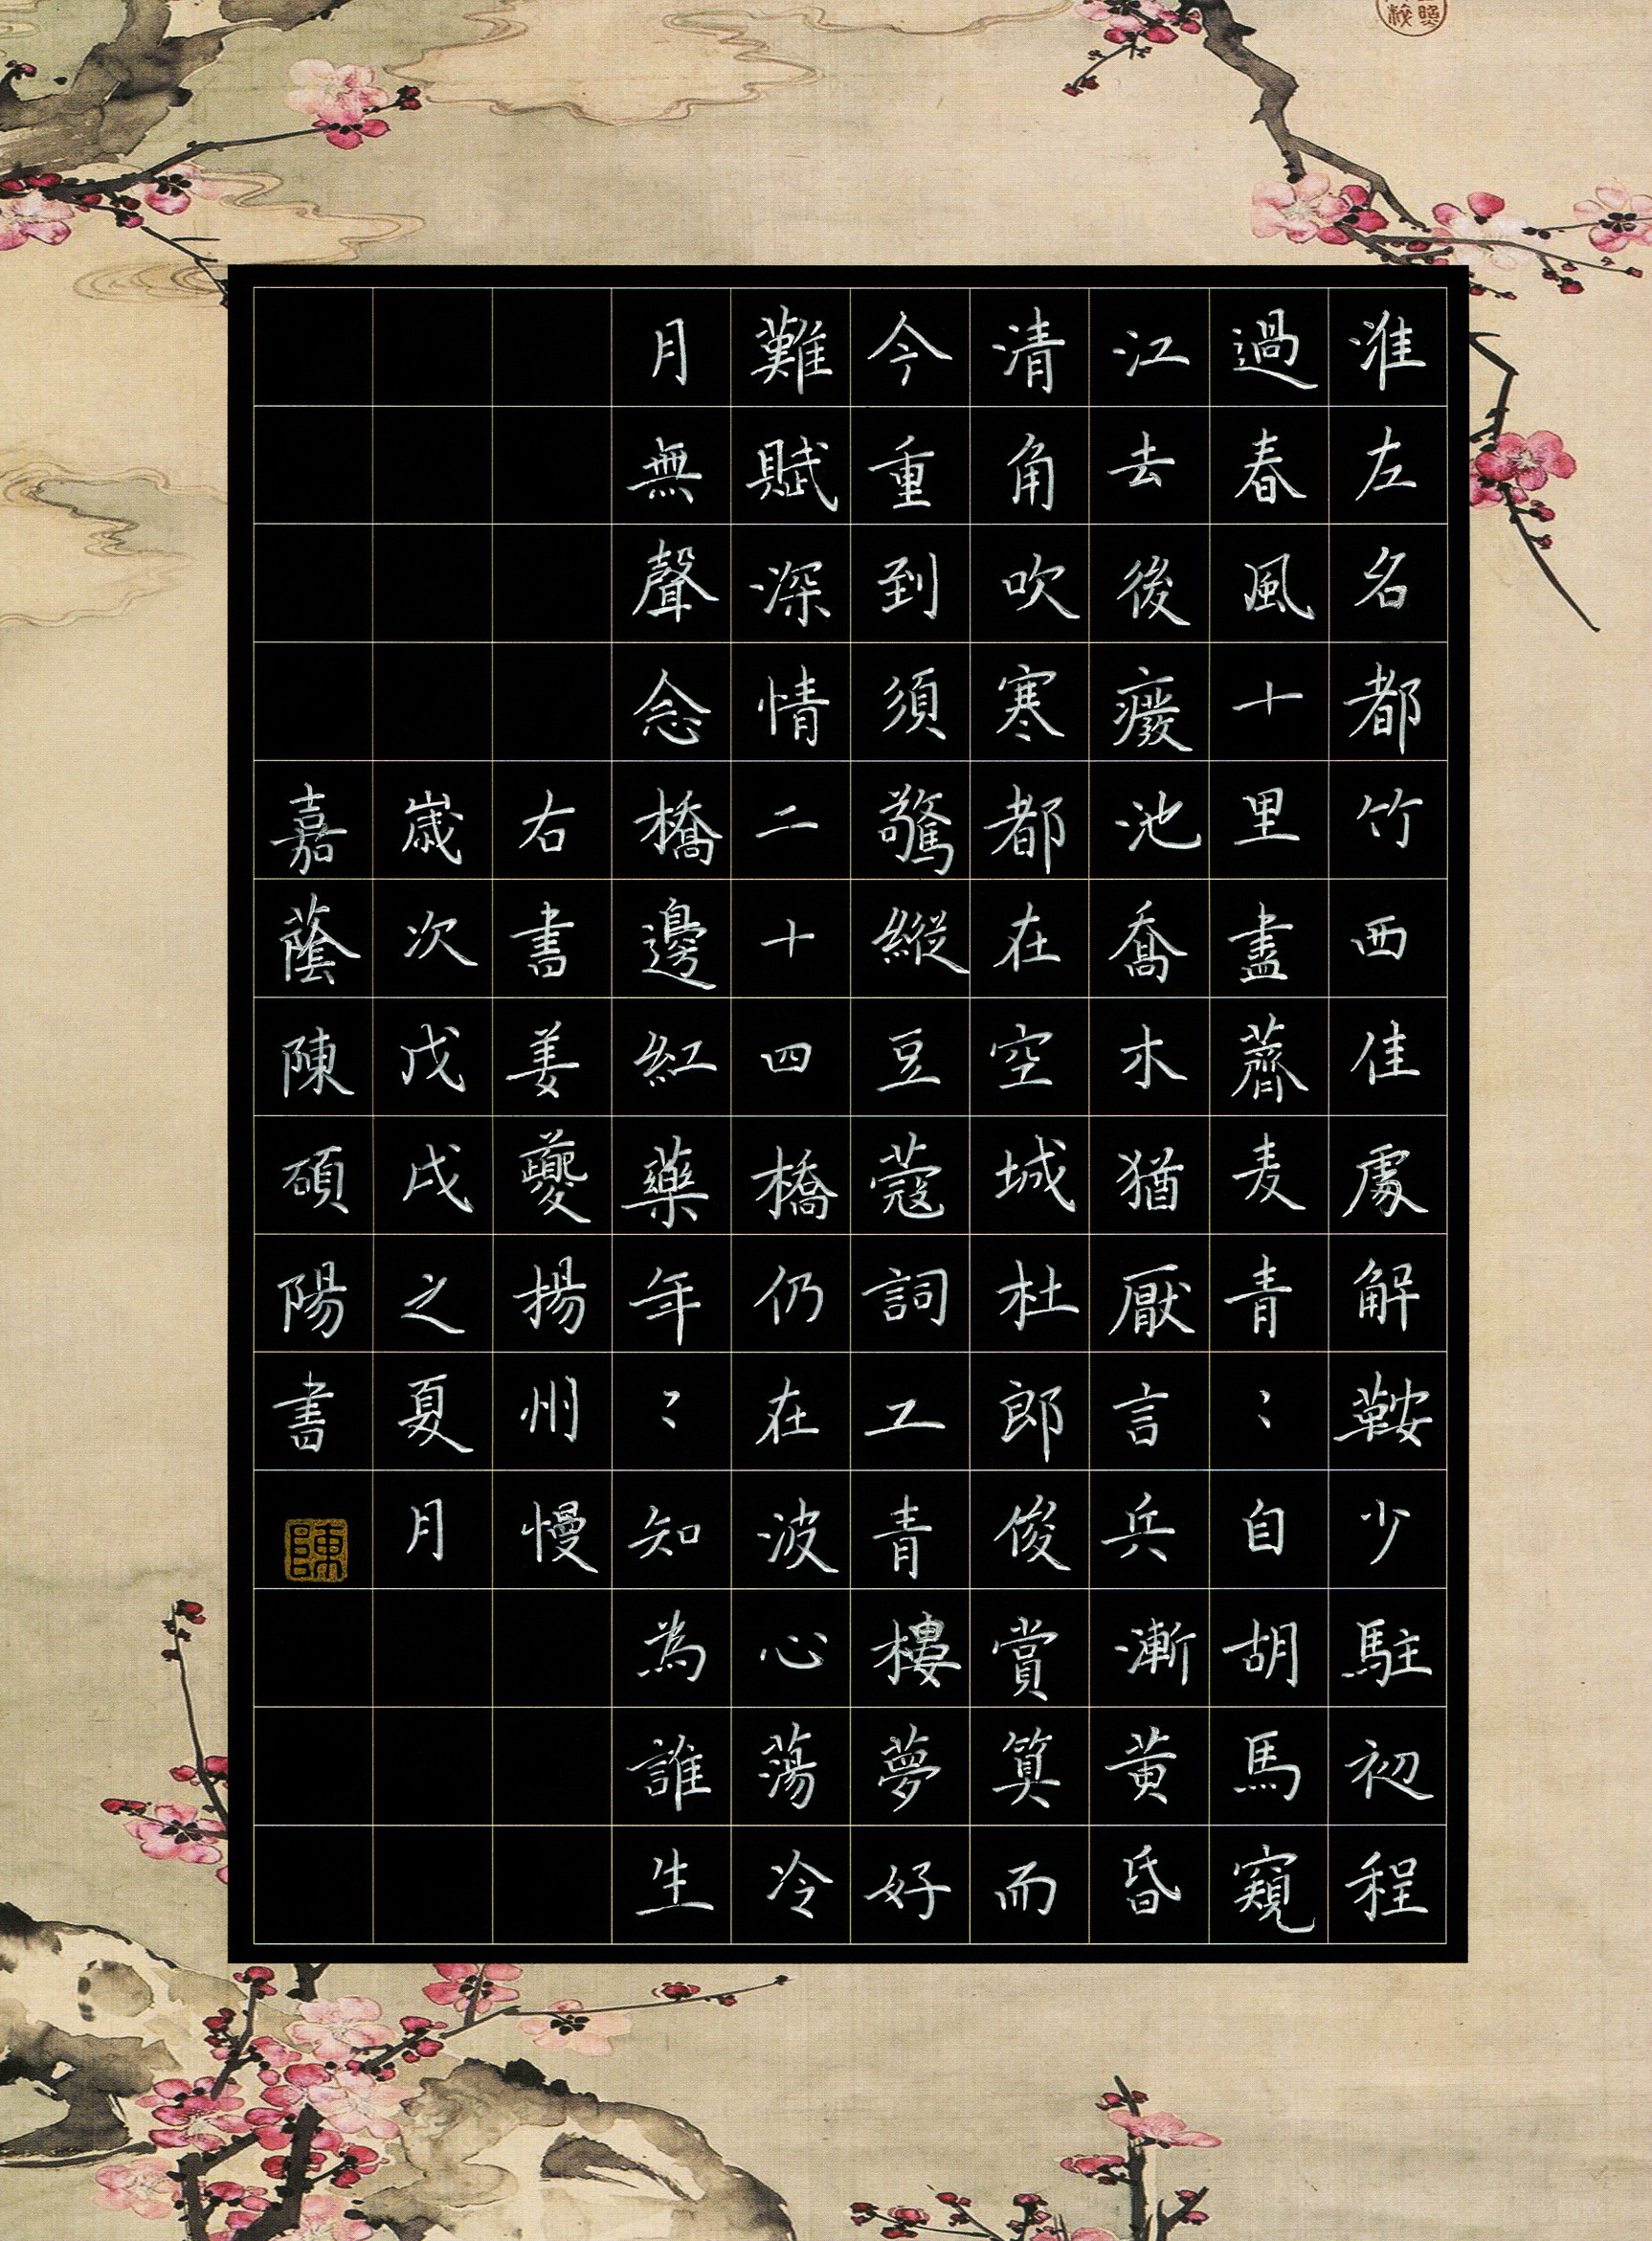 淮左名都竹西佳處解鞍少駐初程
過春風十里盡薺麦青〻自胡馬窺
江去後廢池喬木猶厭言兵漸黄昏
清角吹寒都在空城杜郎俊賞算而
今重到須驚縱豆蔻詞工青樓夢好
難賦深情二十四橋仍在波心蕩冷
月無聲念橋邊紅藥年〻知為誰生
右書姜夔揚州慢
歲次戊戌之夏月
嘉蔭陳碩陽書
陳